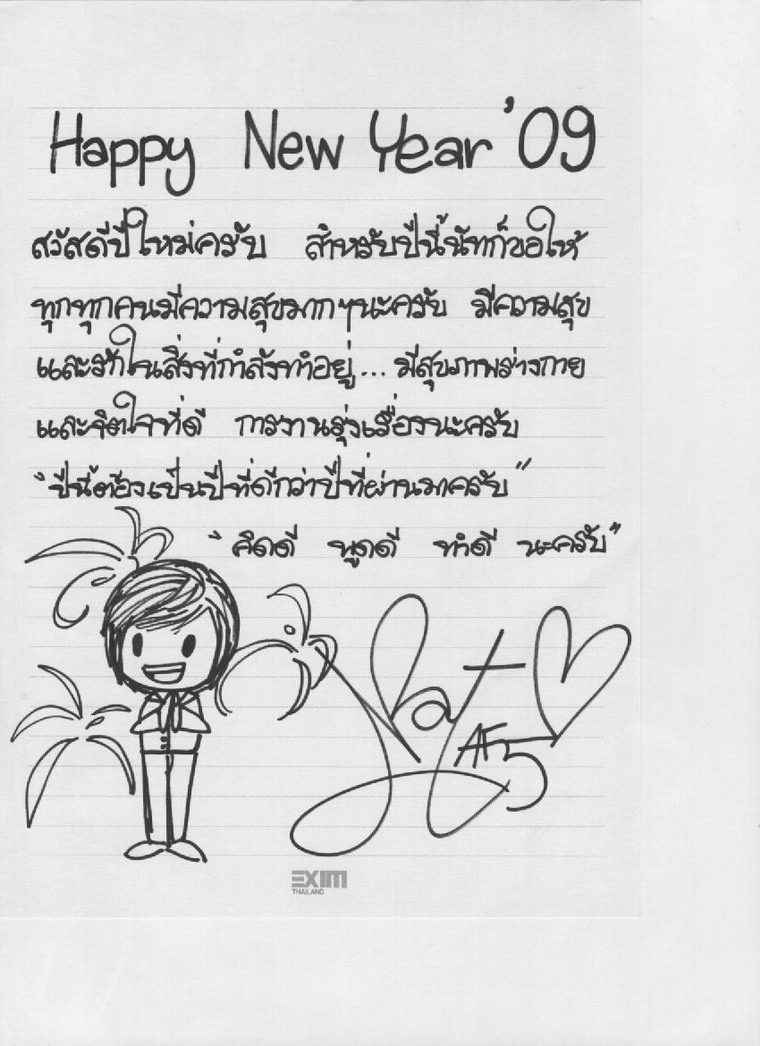 Happy New Year '09
สวัสดีปีใหม่ครับ สำหรับปีนี้นัทก็ขอให้
ทุกทุกคนมีความสุขมากๆนะครับ มีความสุข
และรักในสิ่งที่กำลังทำอยู่... มีสุขภาพร่างกาย
และจิตใจที่ดี การงานรุ่งเรื่องนะครับ
"ปีนี้ต้องเป็นปีที่ดีกว่าปีที่ผ่านมาครับ"
"คิดดี พูดดี ทำดี นะครับ"
Nat AF5
EXIM
THAILAND